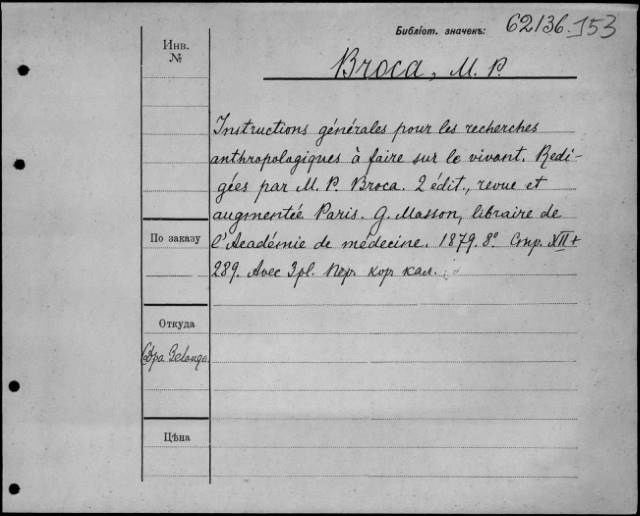 Библіот. значекъ: 62136.153
Инв.
№
Broca, M. P.
Instructions générales pour les recherches
anthropologiques à faire sur le vivant. Redi-
gées par M. P. Broca. 2 édit., revue et
augmentée Paris. G. Masson, libraire de
l'Académie de médecine. 1879. 8º. Стр. XII+
289. Avec 3 pl. Пер. кор. кал.
По заказу
Откуда
Цѣна